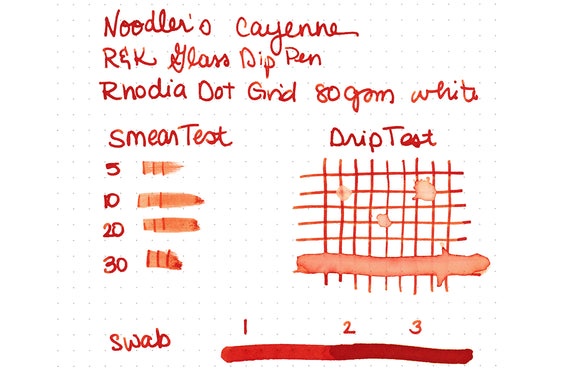 Noodler's Cayenne
R&K Glass Dip Pen
Rhodia Dot Grid 80gsm white
Smear Test
Drip Test
5
10
20
30
1 2 3
Swab